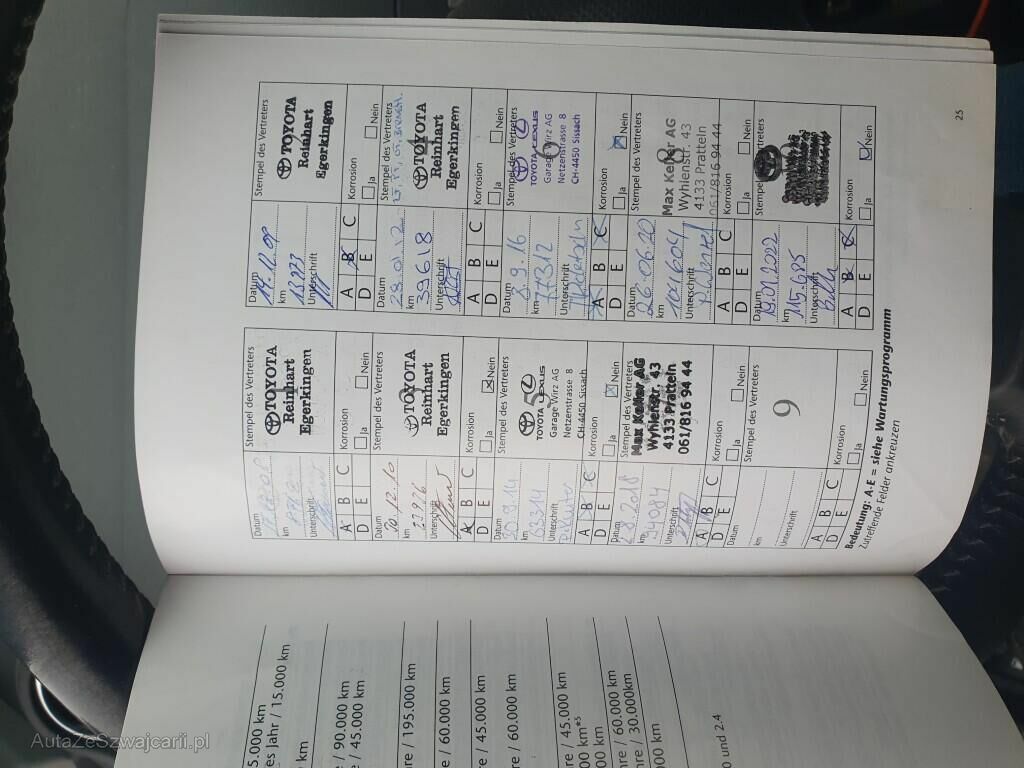 Stempel des Vertreters
TOYOTA
Reinhart
Egerkingen
Datum
km
Unterschrift
A B C
D E
Korrosion
Ja
Nein
Stempel des Vertreters
TOYOTA
Reinhart
Egerkingen
Datum
14.12.09
km
13.973
Unterschrift
A B C
D E
Korrosion
Ja
Nein
Stempel des Vertreters
TOYOTA
Reinhart
Egerkingen
Datum
km
27.926
Unterschrift
A B C
D E
Korrosion
Ja
Nein
Stempel des Vertreters
TOYOTA
Reinhart
Egerkingen
Datum
23.01.12
km
39618
Unterschrift
A B C
D E
Korrosion
Ja
Nein
Stempel des Vertreters
5
TOYOTA LEXUS
Garage Wirz AG
Netzenstrasse 8
CH-4450 Sissach
Datum
30.9.14
km
63314
Unterschrift
A B C
D E
Korrosion
Ja
Nein
Stempel des Vertreters
TOYOTA LEXUS
Garage Wirz AG
Netzenstrasse 8
CH-4450 Sissach
Datum
8.9.16
km
77312
Unterschrift
A B C
D E
Korrosion
Ja
Nein
Stempel des Vertreters
Max Keller AG
Wyhlenstr. 43
4133 Pratteln
061/816 94 44
Datum
2.8.2018
km
94084
Unterschrift
A B C
D E
Korrosion
Ja
Nein
Stempel des Vertreters
8
Max Keller AG
Wyhlenstr. 43
4133 Pratteln
061/816 94 44
Datum
26.06.20
km
104604
Unterschrift
A B C
D E
Korrosion
Ja
Nein
Stempel des Vertreters
9
Datum
km
Unterschrift
A B C
D E
Korrosion
Ja
Nein
Datum
19.01.2022
km
115.685
Unterschrift
A B C
D E
Korrosion
Ja
Nein
Bedeutung: A-E = siehe Wartungsprogramm
Zutreffende Felder ankreuzen
25
5.000 km
es Jahr / 15.000 km
km
e / 90.000 km
e / 45.000 km
re / 195.000 km
re / 60.000 km
re / 45.000 km
re / 60.000 km
re / 45.000 km
00 km*5
00 km
hre / 60.000 km
hre / 30.000km
000 km
0 und 2.4
AutaZeSzwajcarii.pl